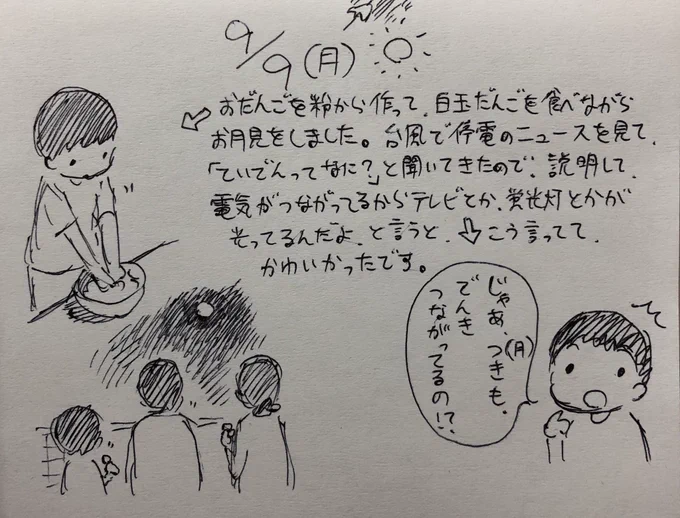 9/9(月)
おだんごを粉から作って、白玉だんごを食べながら
お月見をしました。台風で停電のニュースを見て、
「ていでんってなに?」と聞いてきたので、説明して、
電気がつながってるからテレビとか、蛍光灯とかが
光ってるんだよ、と言うと、⇩こう言ってて、
かわいかったです。
じゃあ、つき(月)も、
でんき
つながってるの!?